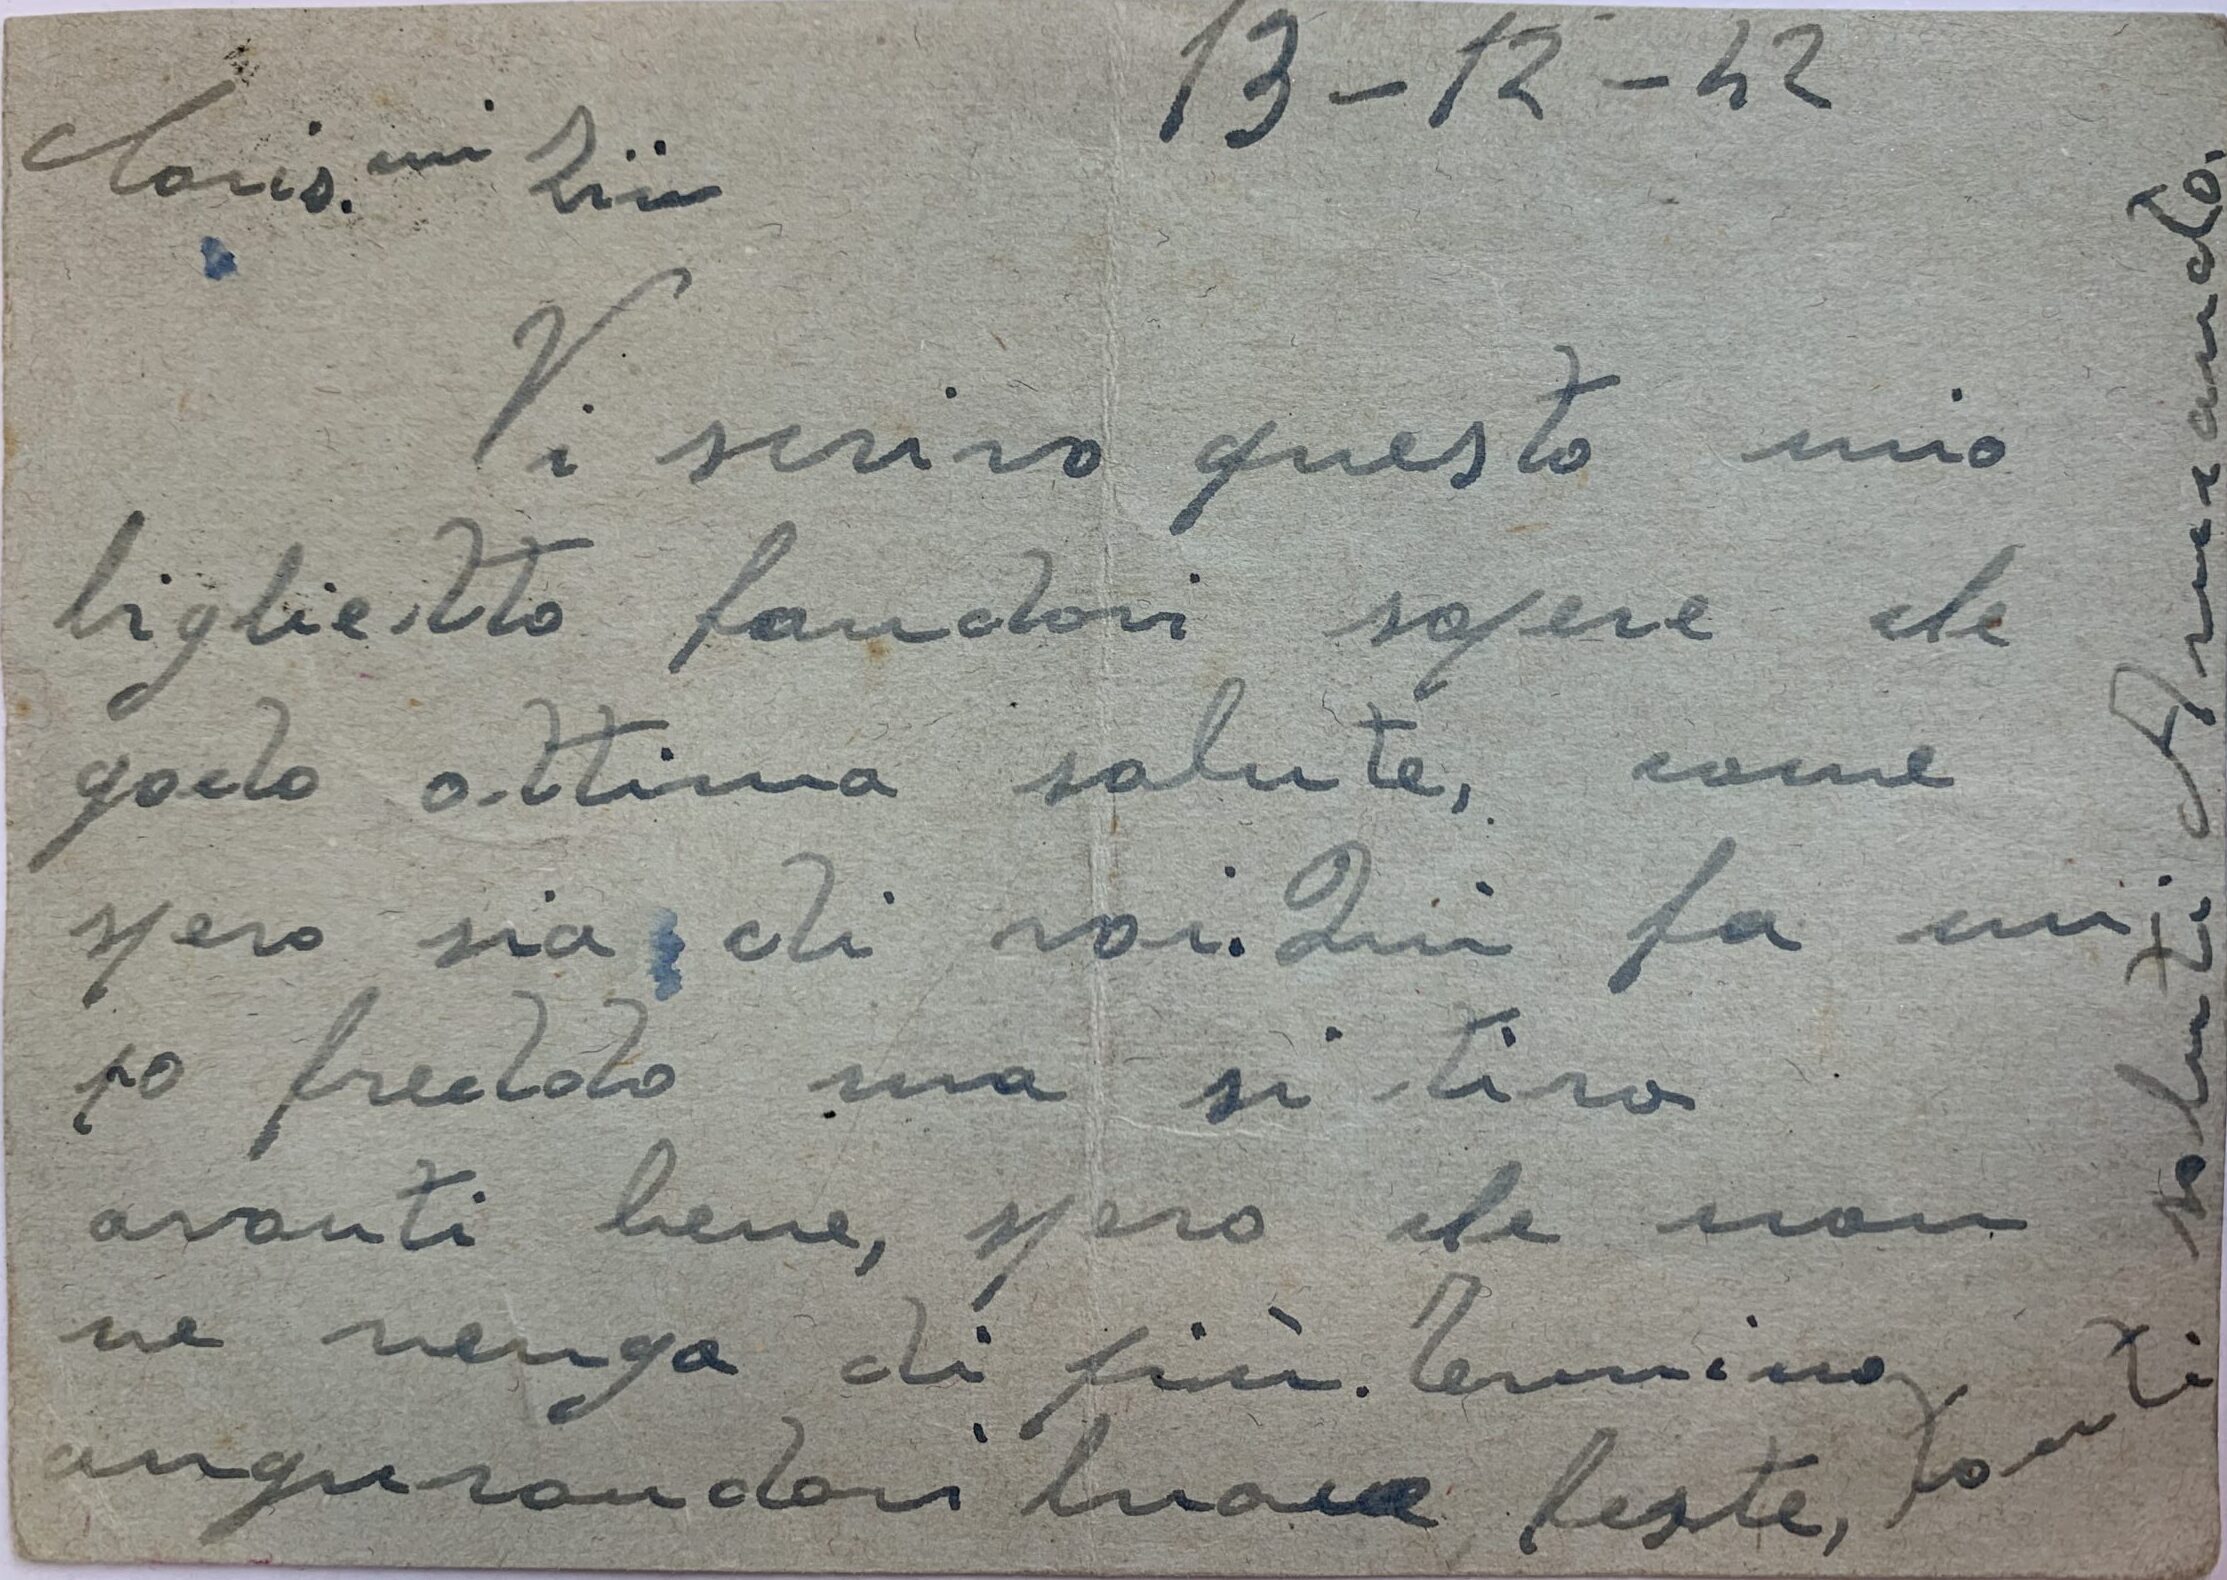 13-12-42
Caris.mi Zii
Vi scrivo questo mio
biglietto facendovi sapere che
godo ottima salute, come
spero sia di voi. Qui fa un
po freddo ma si tira
avanti bene, spero che non
ne venga di più. Termino
augurandovi buone feste, Tanti
saluti Armando.